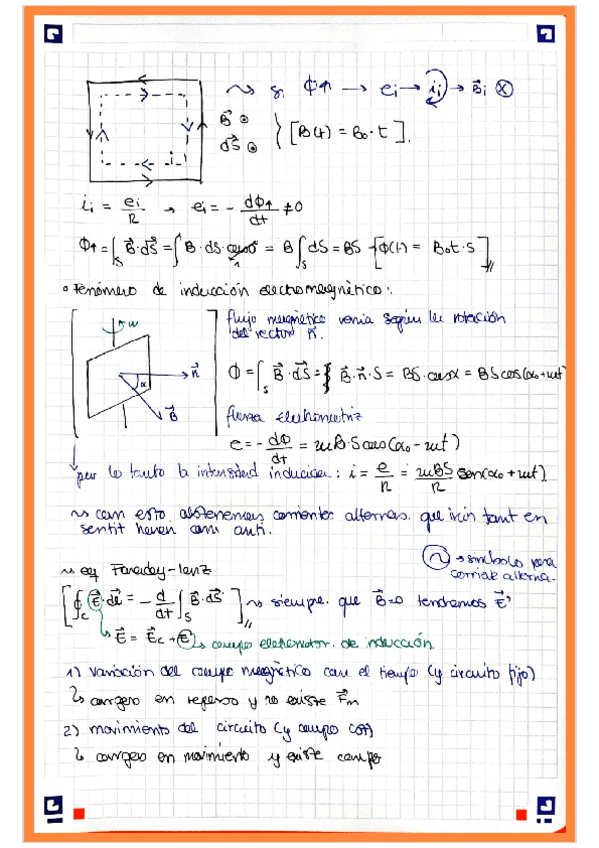 ~> si Φ↑ → ei → ii → B⃗i ⊗
B⃗ ⊙
dS⃗ ⊙
[B(t) = B₀·t].
i
ii = ei/R → ei = - dΦ↑/dt ≠ 0
Φ↑ = ∫s B⃗·dS⃗ = ∫ B·dS·cos0 = B ∫s dS = BS [Φ(t) = B₀t·S]
1
o Fenómeno de inducción electromagnético:
w
n⃗
α
B⃗
flujo magnético varia según la rotación
del vector n⃗.
Φ = ∫s B⃗·dS⃗ = B⃗·n⃗·S = BS·cosα = BScos(α₀+wt)
fuerza electromotriz
e = - dΦ/dt = wB·S (α₀ - wt)
por lo tanto la intensidad inducida: i = e/R = wBS/R sen(α₀+wt)
~> com esto obtenemos corrientes alternas. que irán tant en
sentit horari com anti.
~ → símbolo para
corriente alterna.
~> eq Faraday-lenz
[∮c E⃗·dl⃗ = - d/dt ∫s B⃗·dS⃗] ~> siempre que B⃗=0 tendremos E⃗'
↳ E⃗ = E⃗c + E⃗' → campo electromotor de inducción
1) Variación del campo magnético con el tiempo (y circuito fijo)
↳ cargas en reposo y no existe F⃗m
2) movimiento del circuito (y campo )
↳ cargas en movimiento y existe campo